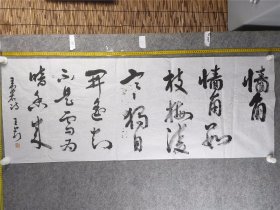 墙角
墙角数
枝梅凌
寒独自
开遥知
不是雪为
暗香来